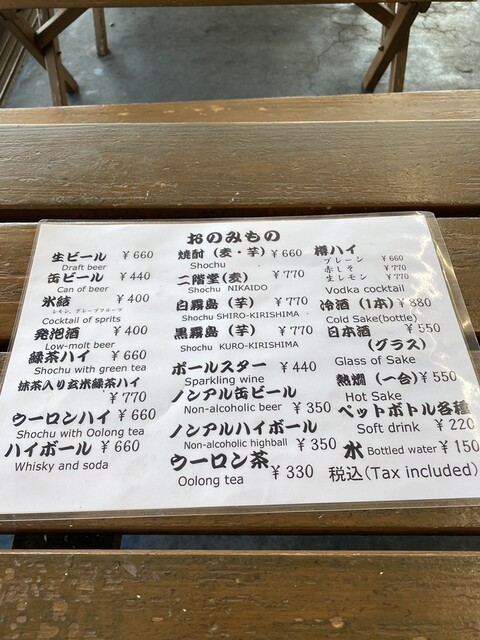 おのみもの
生ビール ¥660
Draft beer
缶ビール ¥440
Can of beer
氷結 ¥400
レモン、グレープフルーツ
Cocktail of sprits
発泡酒 ¥400
Low-molt beer
緑茶ハイ ¥660
Shochu with green tea
抹茶入り玄米緑茶ハイ
¥770
ウーロンハイ ¥660
Shochu with Oolong tea
ハイボール ¥660
Whisky and soda
焼酎(麦・芋) ¥660
Shochu
二階堂(麦) ¥770
Shochu NIKAIDO
白霧島(芋) ¥770
Shochu SHIRO-KIRISHIMA
黒霧島(芋) ¥770
Shochu KURO-KIRISHIMA
ポールスター ¥440
Sparkling wine
ノンアル缶ビール
Non-alcoholic beer ¥350
ノンアルハイボール
Non-alcoholic highball ¥350
ウーロン茶 ¥330
Oolong tea
樽ハイ
プレーン ¥660
赤しそ ¥770
生レモン ¥770
Vodka cocktail
冷酒(1本) ¥880
Cold Sake(bottle)
日本酒 ¥550
(グラス)
Glass of Sake
熱燗(一合) ¥550
Hot Sake
ペットボトル各種
Soft drink ¥220
水 Bottled water ¥150
税込(Tax included)